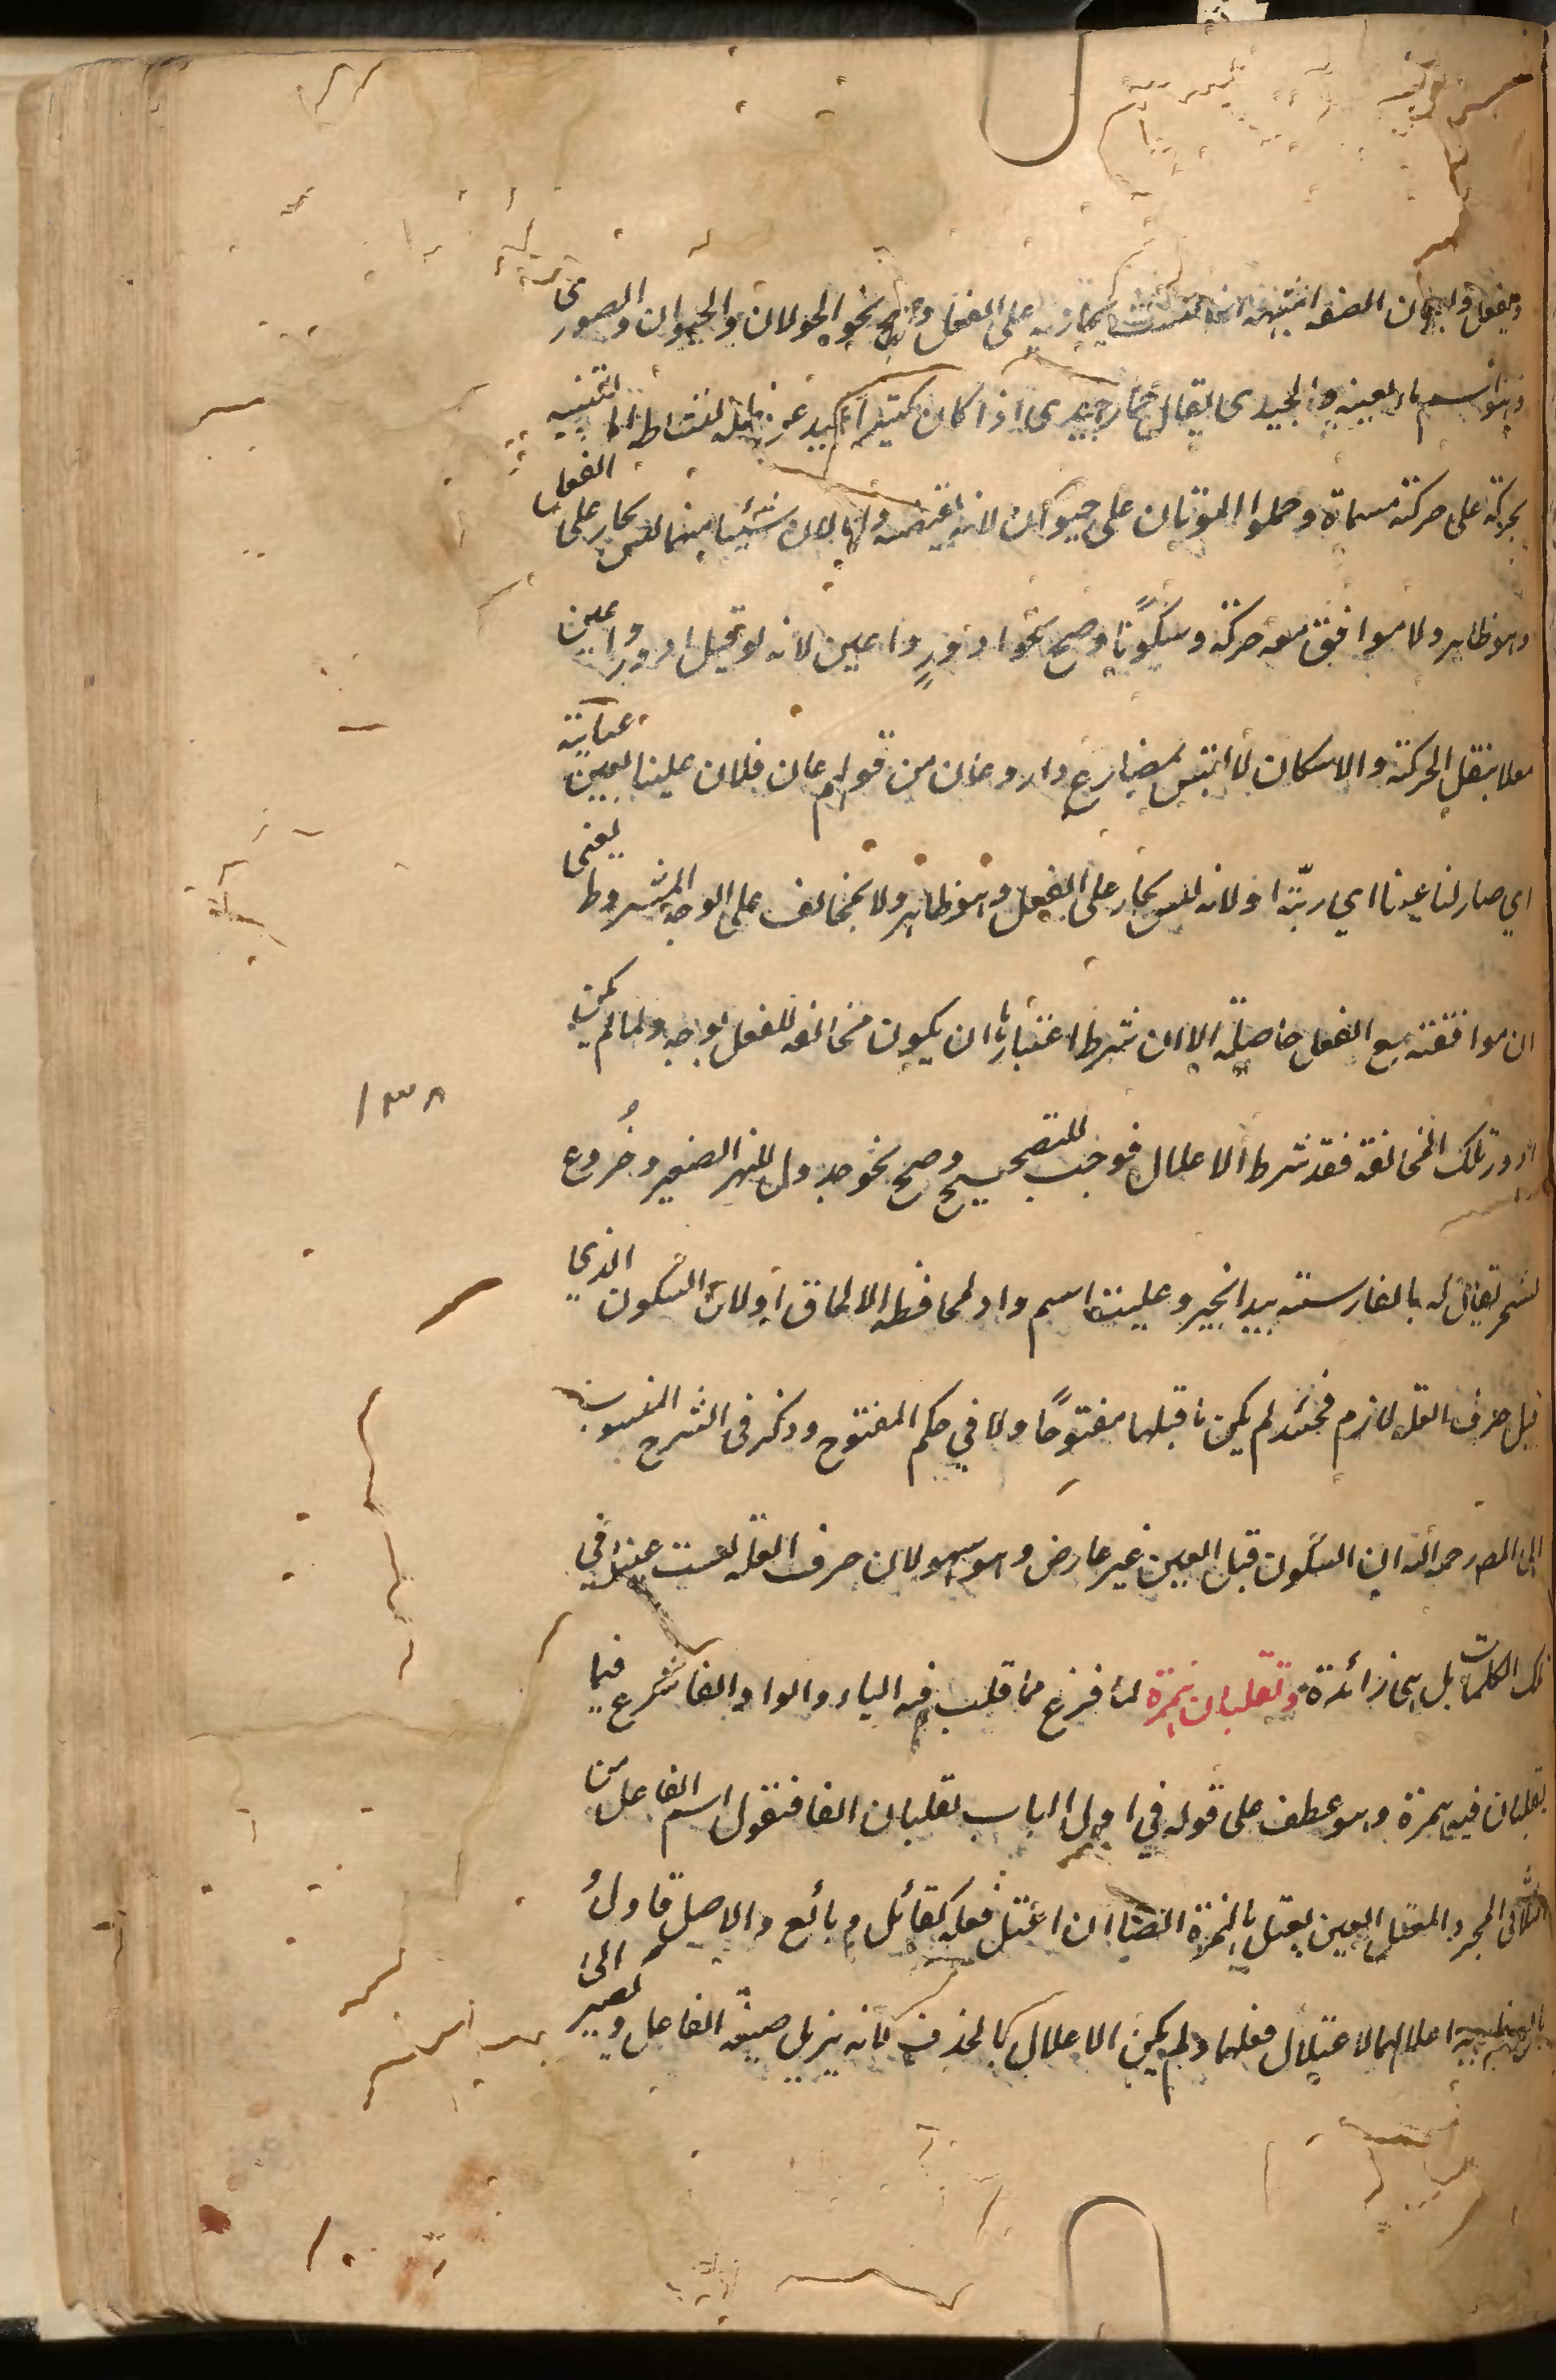 وصح نحو الجولان والحيوان والصورى
وهو اسم ماء بعينه والحيدى يقال حمار حيدى اذا كان كثير الحيد عن ظله لنشاطه للتنبيه
بحركته على حركة مسماه وحملوا الموتان على حيوان لانه نقيضه او لان شيئا منهما ليس بجار على الفعل
وهو ظاهر ولا موافق معه حركة وسكونا وصح نحو ادور واعين لانه لو قيل ادور واعين
معلا بنقل الحركة والاسكان لالتبس بمضارع دار وعان من قولهم عان فلان علينا يعين عيانة
اي صار لنا عينا اي ربيئة او لانه ليس بجار على الفعل وهو ظاهر ولا بمخالف على الوجه المشروط يعنى
ان موافقته مع الفعل حاصلة الا ان شرط اعتبارها ان يكون مخالفه للفعل بوجه ولما لم يكن
تلك المخالفة فقد شرط الاعلال فوجب التصحيح وصح نحو جدول للنهر الصغير وخروع
لشجر يقال له بالفارسية بيد انجير وعليب اسم واد لمحافظة الالحاق او لان السكون الذى
قبل حرف العلة لازم فحينئذ لم يكن ما قبلها مفتوحًا ولا في حكم المفتوح وذكر فى الشرح المنسوب
الى المص رحمه الله ان السكون قبل العين غير عارض وهو سهو لان حرف العلة ليست عينا في
تلك الكلمات بل هى زائدة وتقلبان همزة لما فرغ مما قلب فيه الياء والواو الفا شرع فيما
تقلبان فيه همزة وهو عطف على قوله في اول الباب تقلبان الفا فتقول اسم الفاعل من
الثلاثى المجرد المعتل العين يعتل بالهمزة ايضا ان اعتل فعله كقائل وبائع والاصل قاول و
اعلالهما لاعتلال فعلهما ولم يكن الاعلال بالحذف لانه يزيل صيغة الفاعل ويصير الى
١٣٨